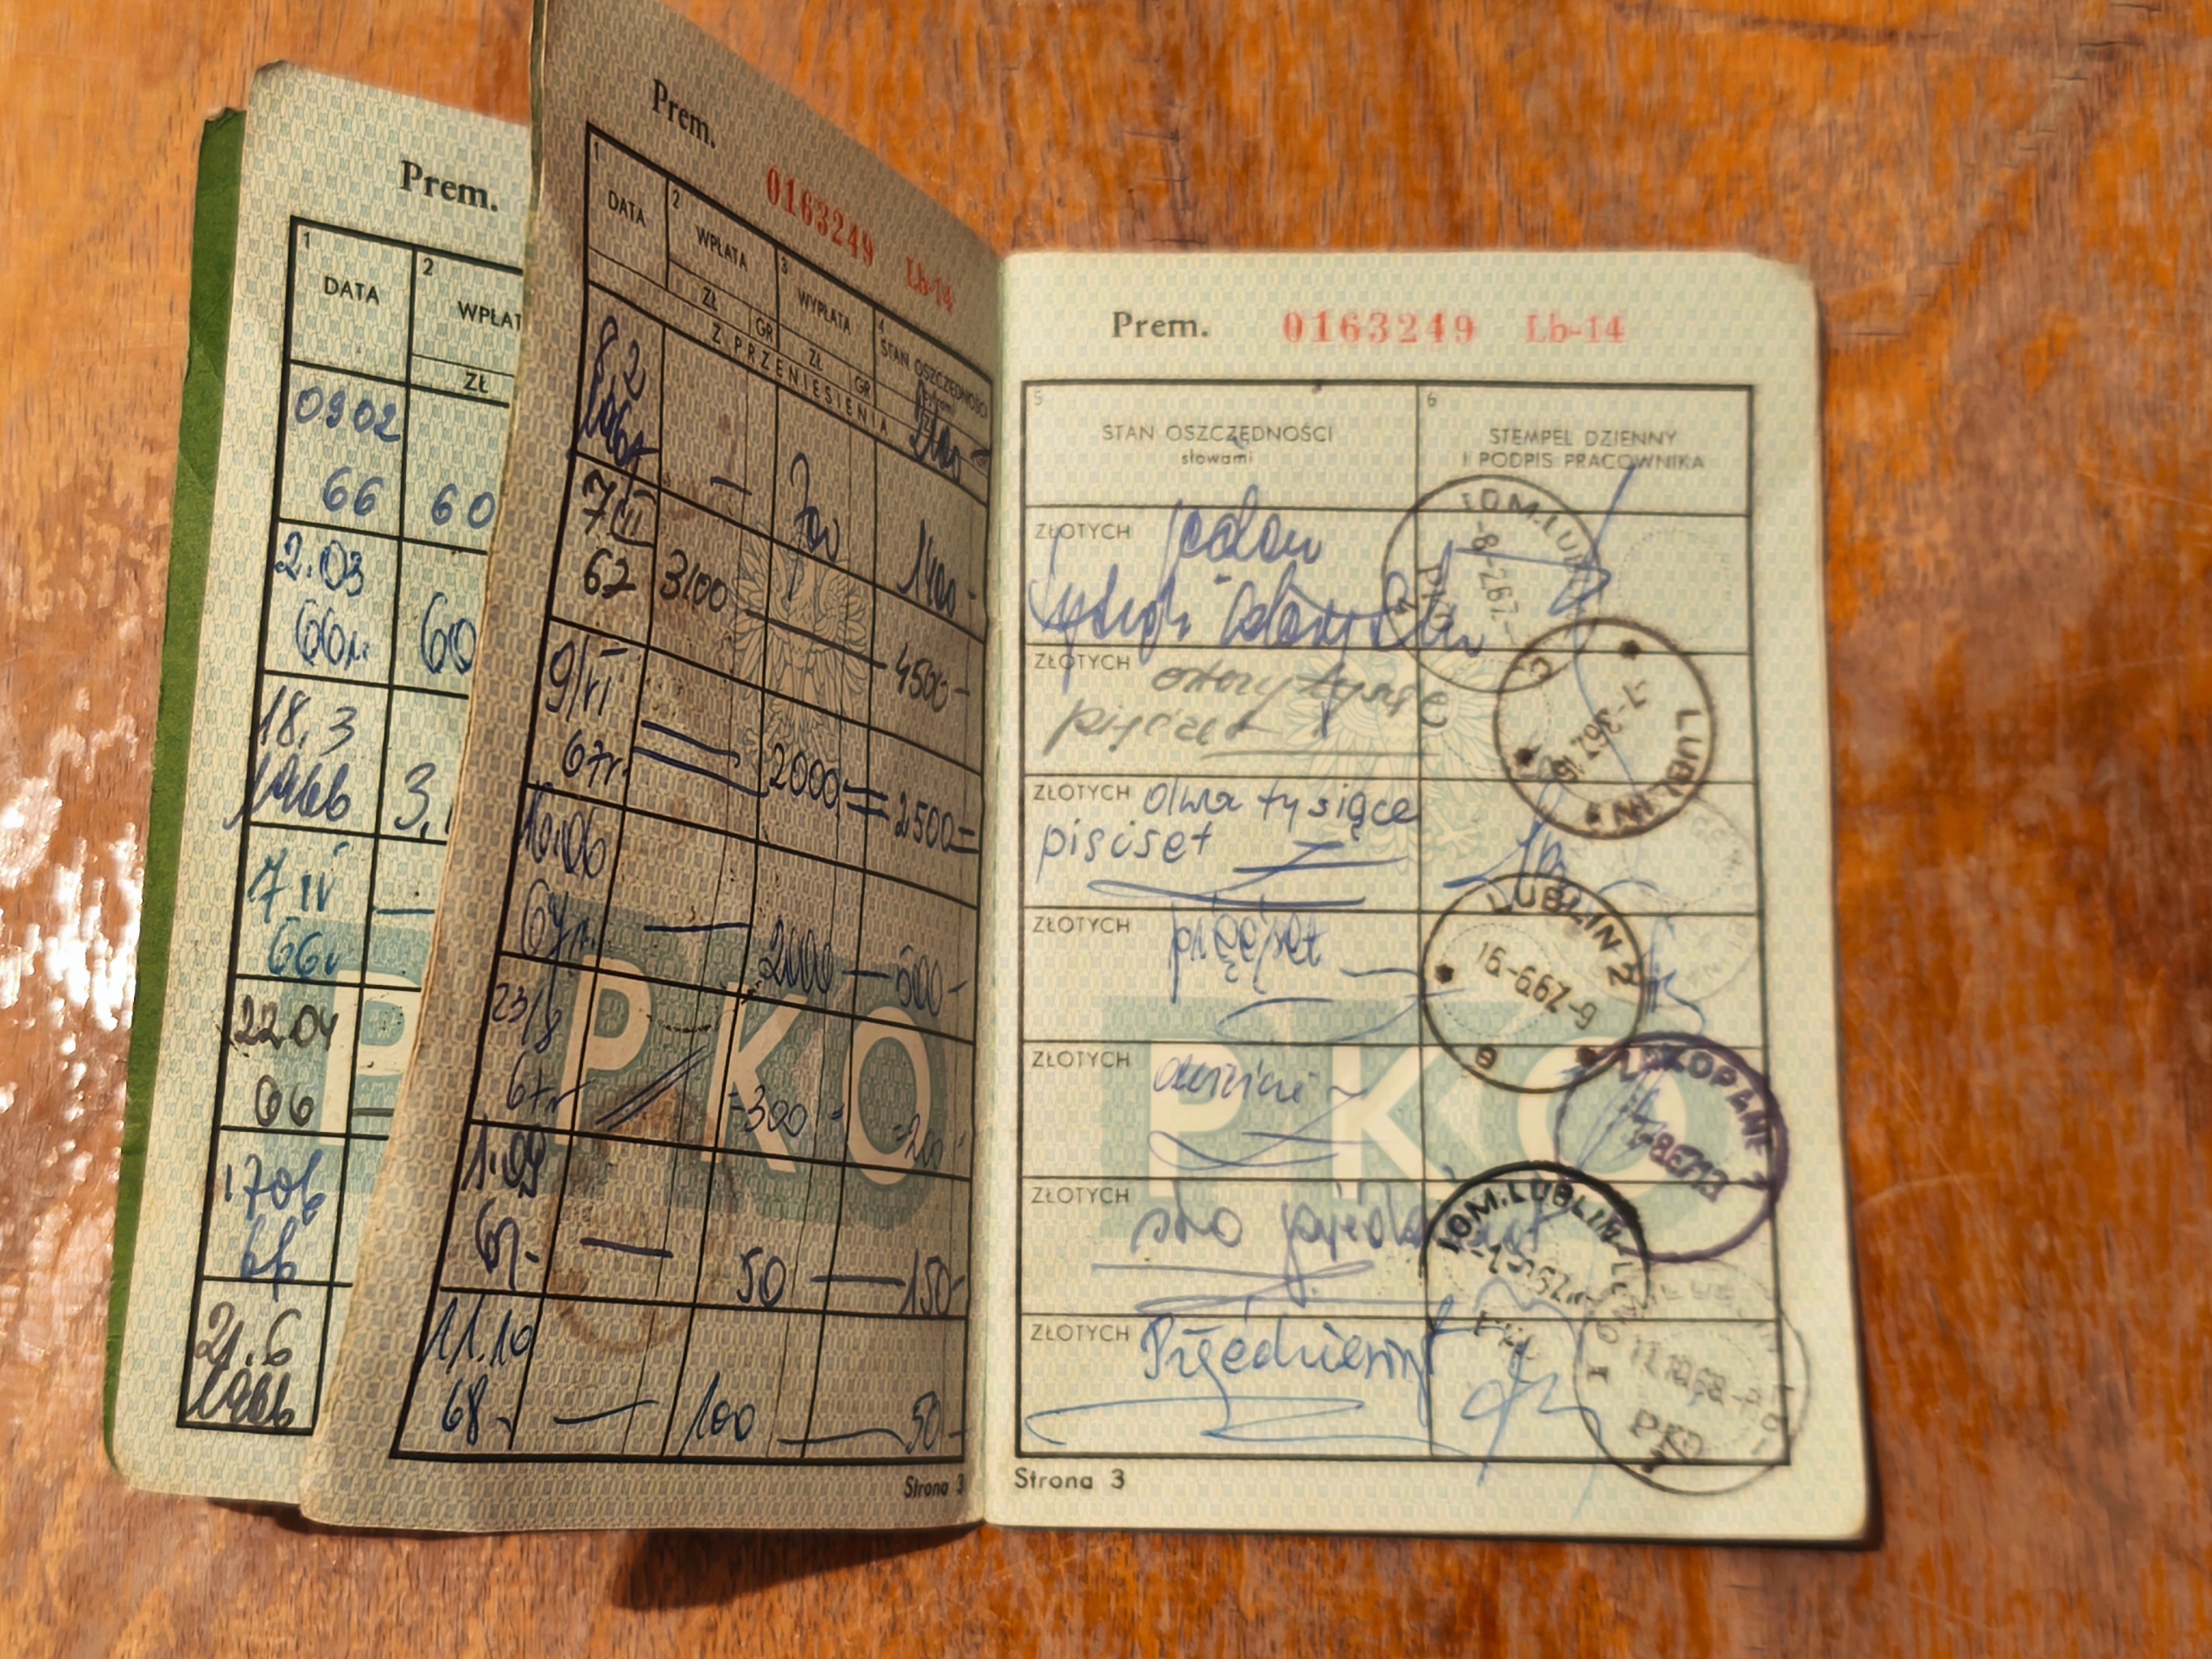 Prem.
1
DATA
2
ZŁ
0902
66
60
2.03
66r.
60
18.3
1966
3,
7 IV
66r
22.04
66
1706
66
21.6
1966
Prem.
0163249 Lb-14
1
DATA
2
WPŁATA
ZŁ GR
3
WYPŁATA
ZŁ GR
4
STAN OSZCZĘDNOŚCI
Z PRZENIESIENIA
8.2
1967
—
700
1400-
7/III
67
3100 —
4500-
9/VI
67r.
2000=
2500=
10.06
67r.
—
2000 —
500-
23/8
67r
=300=
=200=
1.09
67r-
—
50 —
150-
11.10
68r
—
100 —
50-
PKO
Strona 3
Prem. 0163249 Lb-14
5
STAN OSZCZĘDNOŚCI
słowami
6
STEMPEL DZIENNY
I PODPIS PRACOWNIKA
ZŁOTYCH jeden
tysiąc czterysta
ZŁOTYCH cztery tysiące
pięćset
ZŁOTYCH dwa tysiące
pięćset
ZŁOTYCH pięćset
ZŁOTYCH dwieście
ZŁOTYCH sto pięćdziesiąt
ZŁOTYCH Pięćdziesiąt
PKO
IOM.LUBLIN
-8-267-
PKO
LUBLIN
-7-367
LUBLIN 2
16-667-9
e
ZAKOPANE 1
IOM.LUBLIN
PKO
11.1068
PKO
Strona 3